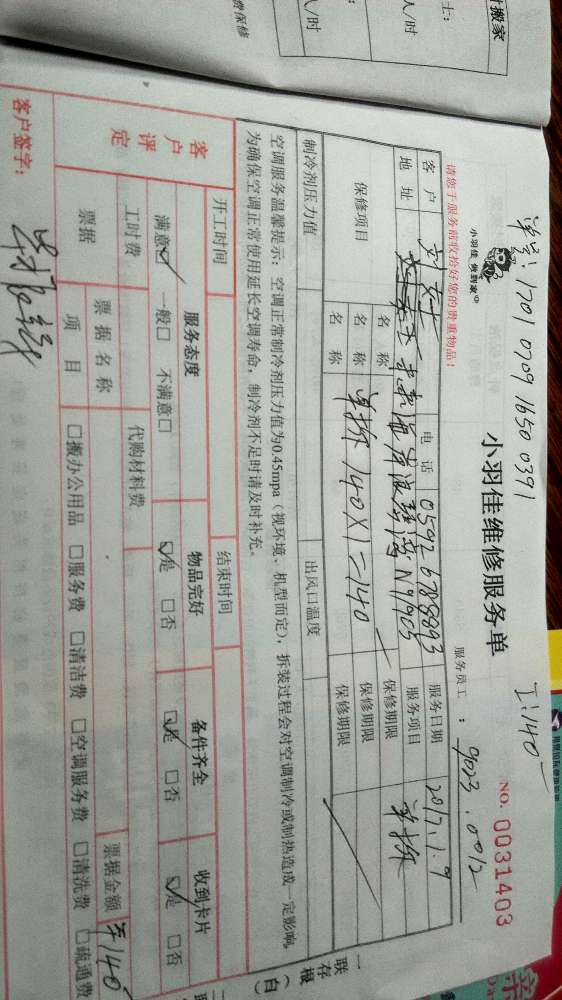 单号: 1701 0709 1650 0391
I: 140
小羽佳 做到家
小羽佳维修服务单
NO. 0031403
服务员工: 9023. 0012
请您于服务前收拾好您的贵重物品!
客户
电话 0592 6788893
服务日期 2017.1.9
地址
N9/903
服务项目 单拆
保修项目
名称
保修期限
名称 单拆 140×1=140
保修期限
名称
保修期限
制冷剂压力值
出风口温度
空调服务温馨提示: 空调正常制冷剂压力值为0.45mpa (视环境、机型而定), 拆装过程会对空调制冷或制热造成一定影响,
为确保空调正常使用延长空调寿命, 制冷剂不足时请及时补充。
开工时间
结束时间
客户评定
服务态度
物品完好
备件齐全
收到卡片
满意☑ 一般□ 不满意□
☑是 □否
☑是 □否
☑是 □否
工时费
代购材料费
票据
票据名称
票据金额 ¥140
项目
□搬办公用品 □服务费 □清洁费 □空调服务费 □清洗费 □疏通费
客户签字:
一联存根(白)
搬家
人/时
人/时
费保修